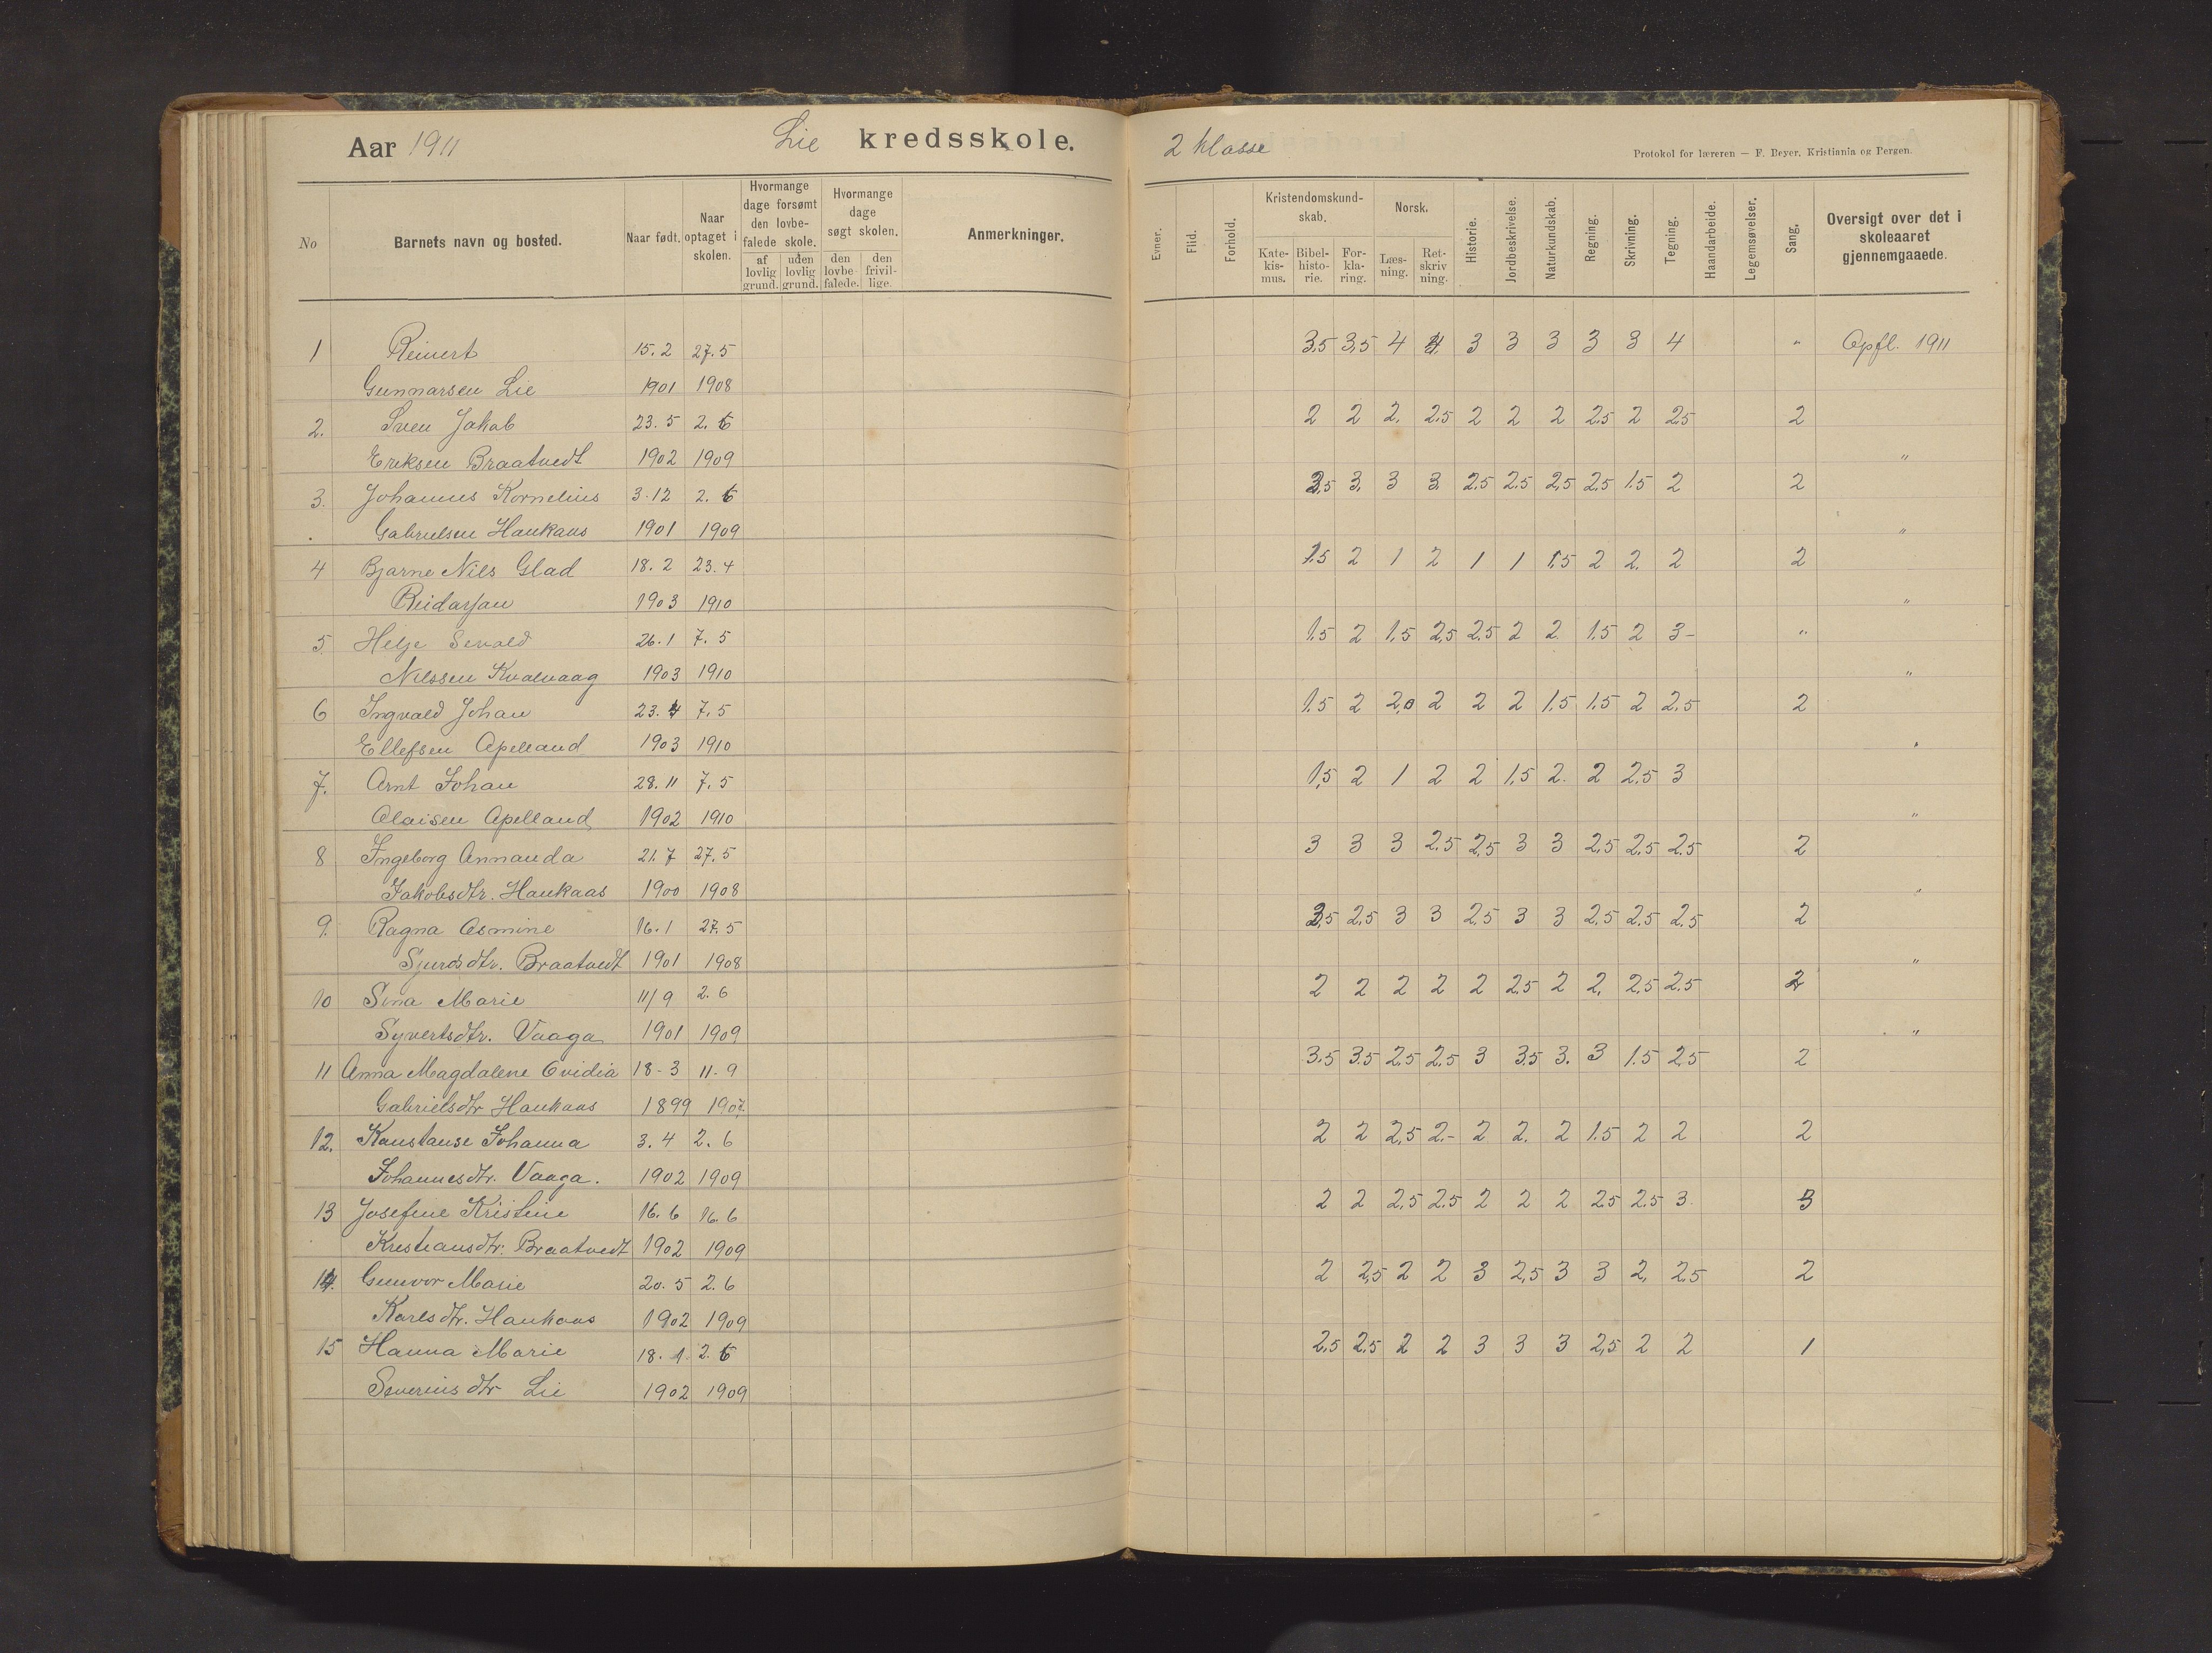 Aar 1911 Lie kredsskole.
No
Barnets navn og bosted.
Naar født.
Naar optaget i skolen.
Hvormange dage forsømt den lovbefalede skole.
af lovlig grund.
uden lovlig grund.
Hvormange dage søgt skolen.
den lovbefalede.
den frivillige.
Anmerkninger.
1 Reinert 15.2 27.5
Gunnarsen Lie 1901 1908
2. Sven Jakob 23.5 2.6
Eriksen Braatvedt 1902 1909
3. Johannes Kornelius 3-12 2.6
Gabrielsen Haukaas 1901 1909
4 Bjarne Nils Glad 18.2 23.4
1903 1910
5. Helje Sevald 26.1 7.5
Nilssen Kvalvaag 1903 1910
6 Ingvald Johan 23.4 7.5
Ellefsen Apelland 1903 1910
7. Arnt Johan 28.11 7.5
Olaisen Apelland 1902 1910
8 Ingeborg Annanda 21.7 27.5
Jakobsdtr. Haukaas 1900 1908
9. Ragna Osmine 16.1 27.5
Sjursdtr. Braatvedt 1901 1908
10 Sina Marie 11/9 2.6
Syvertsdtr. Vaaga 1901 1909
11 Anna Magdalene Ovidia 18-3 11-9
Gabrielsdtr Haukaas 1899 1907.
12. Konstanse Johanna 3.4 2.6
Johannesdtr. Vaaga. 1902 1909
13 Josefine Kristine 16.6 16.6
Kristiansdtr. Braatvedt 1902 1909
14. Gunvor Marie 20.5 2.6
Karlsdtr. Haukaas 1902 1909
15 Hanna Marie 18.1. 2.6
Severinsdtr Lie 1902 1909
2 klasse
Protokol for læreren — F. Beyer, Kristiania og Bergen.
Evner.
Flid.
Forhold.
Kristendomskundskab.
Katekismus.
Bibelhistorie.
Forklaring.
Norsk.
Læsning.
Retskrivning.
Historie.
Jordbeskrivelse.
Naturkundskab.
Regning.
Skrivning.
Tegning.
Haandarbeide.
Legemsøvelser.
Sang.
Oversigt over det i skoleaaret gjennemgaaede.
3,5 3,5 4 4. 3 3 3 3 3 4 " Opfl. 1911
2 2 2. 2,5 2 2 2 2,5 2 2,5 2
"
3,5 3. 3 3. 2,5 2,5 2,5 2,5 1.5 2 2
"
1.5 2 1 2 1 1 1.5 2 2. 2 2
"
1.5 2 1.5 2,5 2.5 2 2. 1.5 2 3- "
"
1.5 2 2,0 2 2 2 1.5 1.5 2 2.5 2
"
1,5 2 1 2 2 1,5 2. 2 2.5 3
"
3 3 3 2.5 2,5 3 3 2,5 2,5 2.5 2
"
3,5 2,5 3 3 2,5 3 3 2,5 2.5 2.5 2
"
2 2 2 2 2 2,5 2 2. 2,5 2.5 2
"
3.5 3.5 2,5 2,5 3 3.5 3. 3 1.5 2,5 2
2 2 2,5 2.- 2 2. 2 1.5 2 2 2
2 2 2,5 2.5 2 2 2 2,5 2.5 3. 3
2 2,5 2 2 3 2,5 3 3 2. 2.5 2
2,5 2,5 2 2 3 3 3 2,5 2 2 1